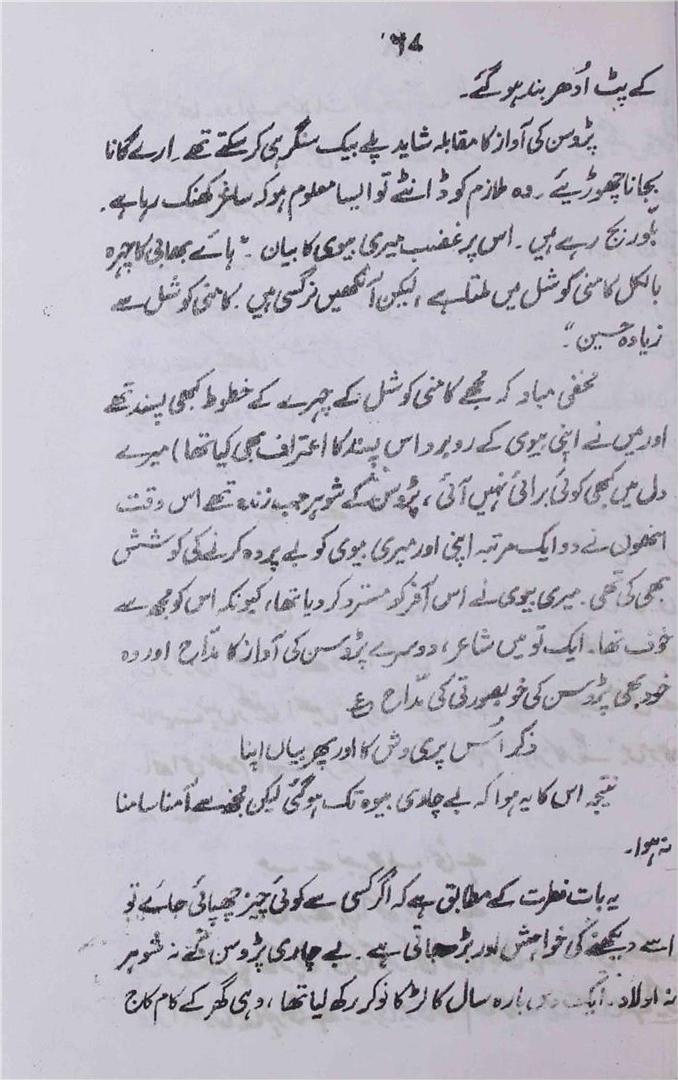 ۶۸
کے پٹ اُدھر بند ہو گئے۔
پڑوسن کی آواز کا مقابلہ شاید پلے بیک سنگر ہی کر سکتے تھے۔ ارے گانا
بجانا چھوڑیئے۔ وہ ملازم کو ڈانٹے تو ایسا معلوم ہو کہ ساغر کھنک رہا ہے۔
بلّور بج رہے ہیں۔ اس پر غضب میری بیوی کا بیان۔ "ہائے بھابی کا چہرہ
بالکل کامنی کوشل میں ملتا ہے، لیکن آنکھیں نرگسی ہیں۔ کامنی کوشل سے
زیادہ حسین"
مخفی مباد کہ مجھے کامنی کوشل کے چہرے کے خطوط کبھی پسند تھے
اور میں نے اپنی بیوی کے روبرو اس پسند کا اعتراف بھی کیا تھا) میرے
دل میں کبھی کوئی برائی نہیں آئی، پڑوسن کے شوہر جب زندہ تھے اس وقت
انھوں نے دو ایک مرتبہ اپنی اور میری بیوی کو بے پردہ کرنے کی کوشش
بھی کی تھی۔ میری بیوی نے اس آفر کو مسترد کر دیا تھا، کیونکہ اس کو مجھ سے
خوف تھا۔ ایک تو میں شاعر، دوسرے پڑوسن کی آواز کا مدّاح اور وہ
خود بھی پڑوسن کی خوبصورتی کی مدّاح ؏
ذکر اُس پری وش کا اور پھر بیاں اپنا
نتیجہ اس کا یہ ہوا کہ بے چاری بیوہ تک ہو گئی لیکن مجھ سے آمنا سامنا
نہ ہوا۔
یہ بات فطرت کے مطابق ہے کہ اگر کسی سے کوئی چیز چھپائی جائے تو
اسے دیکھنے کی خواہش اور بڑھ جاتی ہے۔ بے چاری پڑوسن کے نہ شوہر
نہ اولاد۔ ایک دس بارہ سال کا لڑکا نوکر رکھ لیا تھا، وہی گھر کے کام کاج